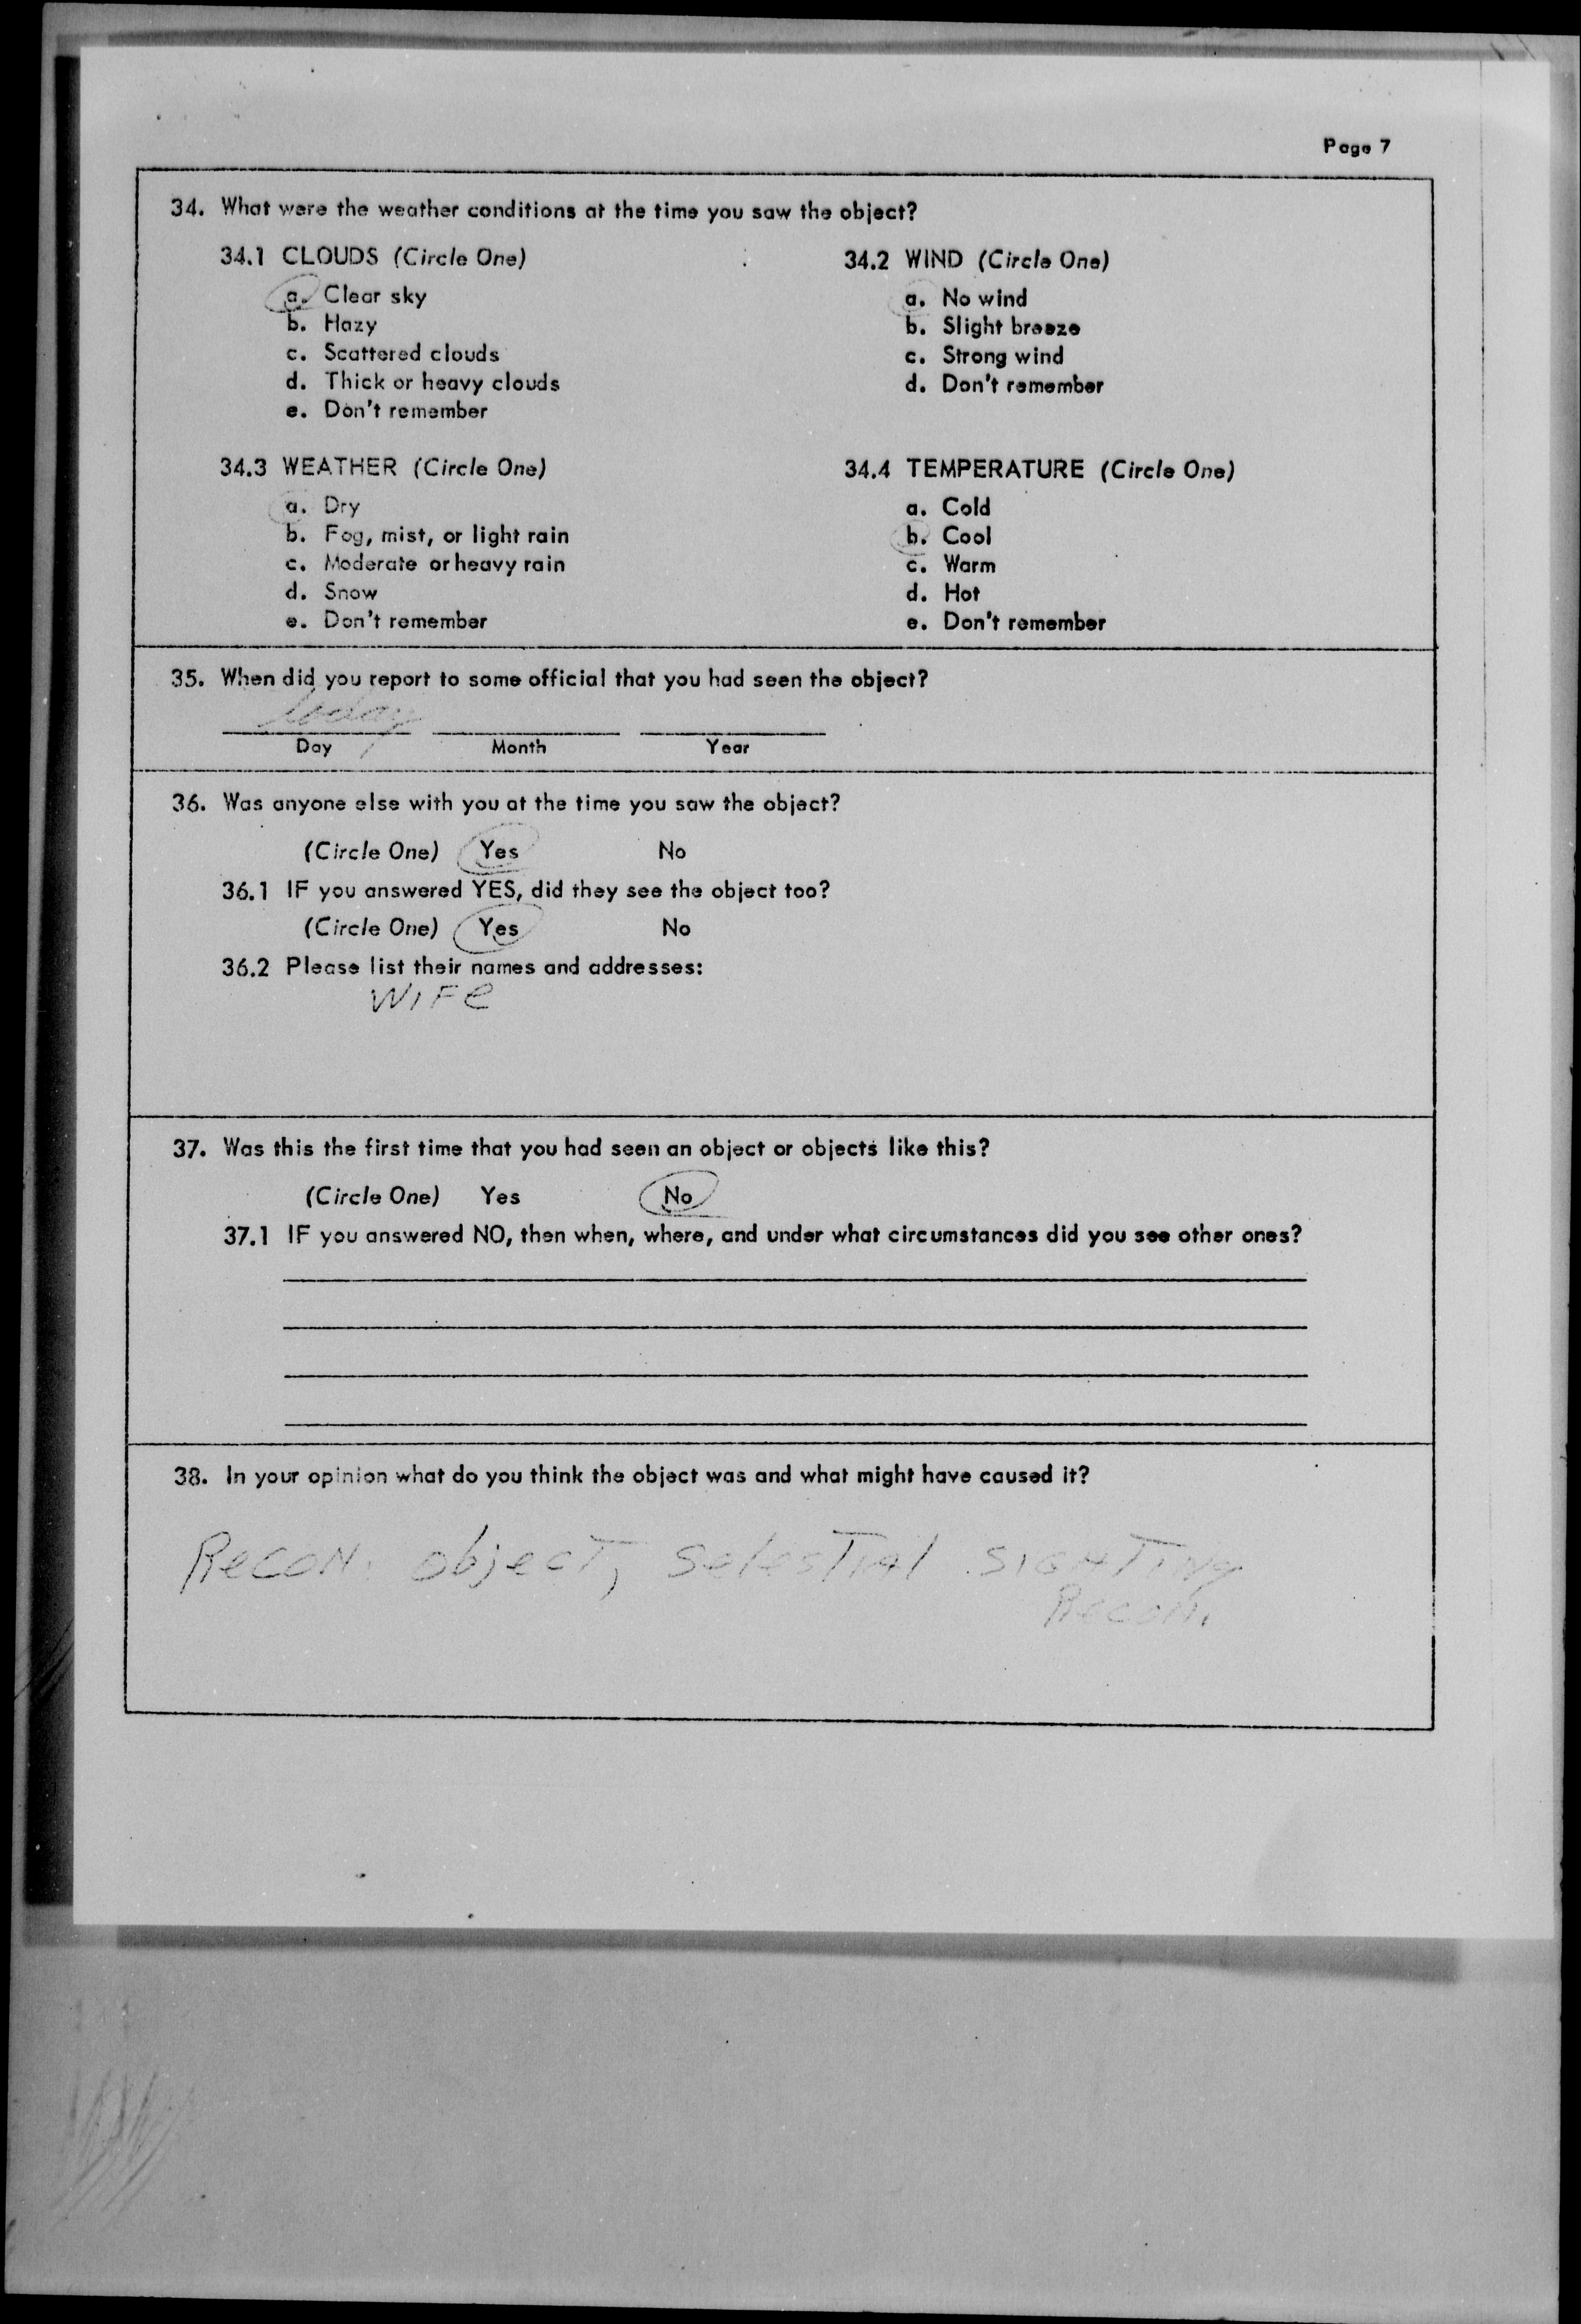 Page 7
34. What were the weather conditions at the time you saw the object?
34.1 CLOUDS (Circle One)
a. Clear sky
b. Hazy
c. Scattered clouds
d. Thick or heavy clouds
e. Don't remember
34.2 WIND (Circle One)
a. No wind
b. Slight breeze
c. Strong wind
d. Don't remember
34.3 WEATHER (Circle One)
a. Dry
b. Fog, mist, or light rain
c. Moderate or heavy rain
d. Snow
e. Don't remember
34.4 TEMPERATURE (Circle One)
a. Cold
b. Cool
c. Warm
d. Hot
e. Don't remember
35. When did you report to some official that you had seen the object?
today
Day Month Year
36. Was anyone else with you at the time you saw the object?
(Circle One) Yes No
36.1 IF you answered YES, did they see the object too?
(Circle One) Yes No
36.2 Please list their names and addresses:
WIFe
37. Was this the first time that you had seen an object or objects like this?
(Circle One) Yes No
37.1 IF you answered NO, then when, where, and under what circumstances did you see other ones?
38. In your opinion what do you think the object was and what might have caused it?
RecoN. object, SelesTIAl SIGHTINg
Recon.